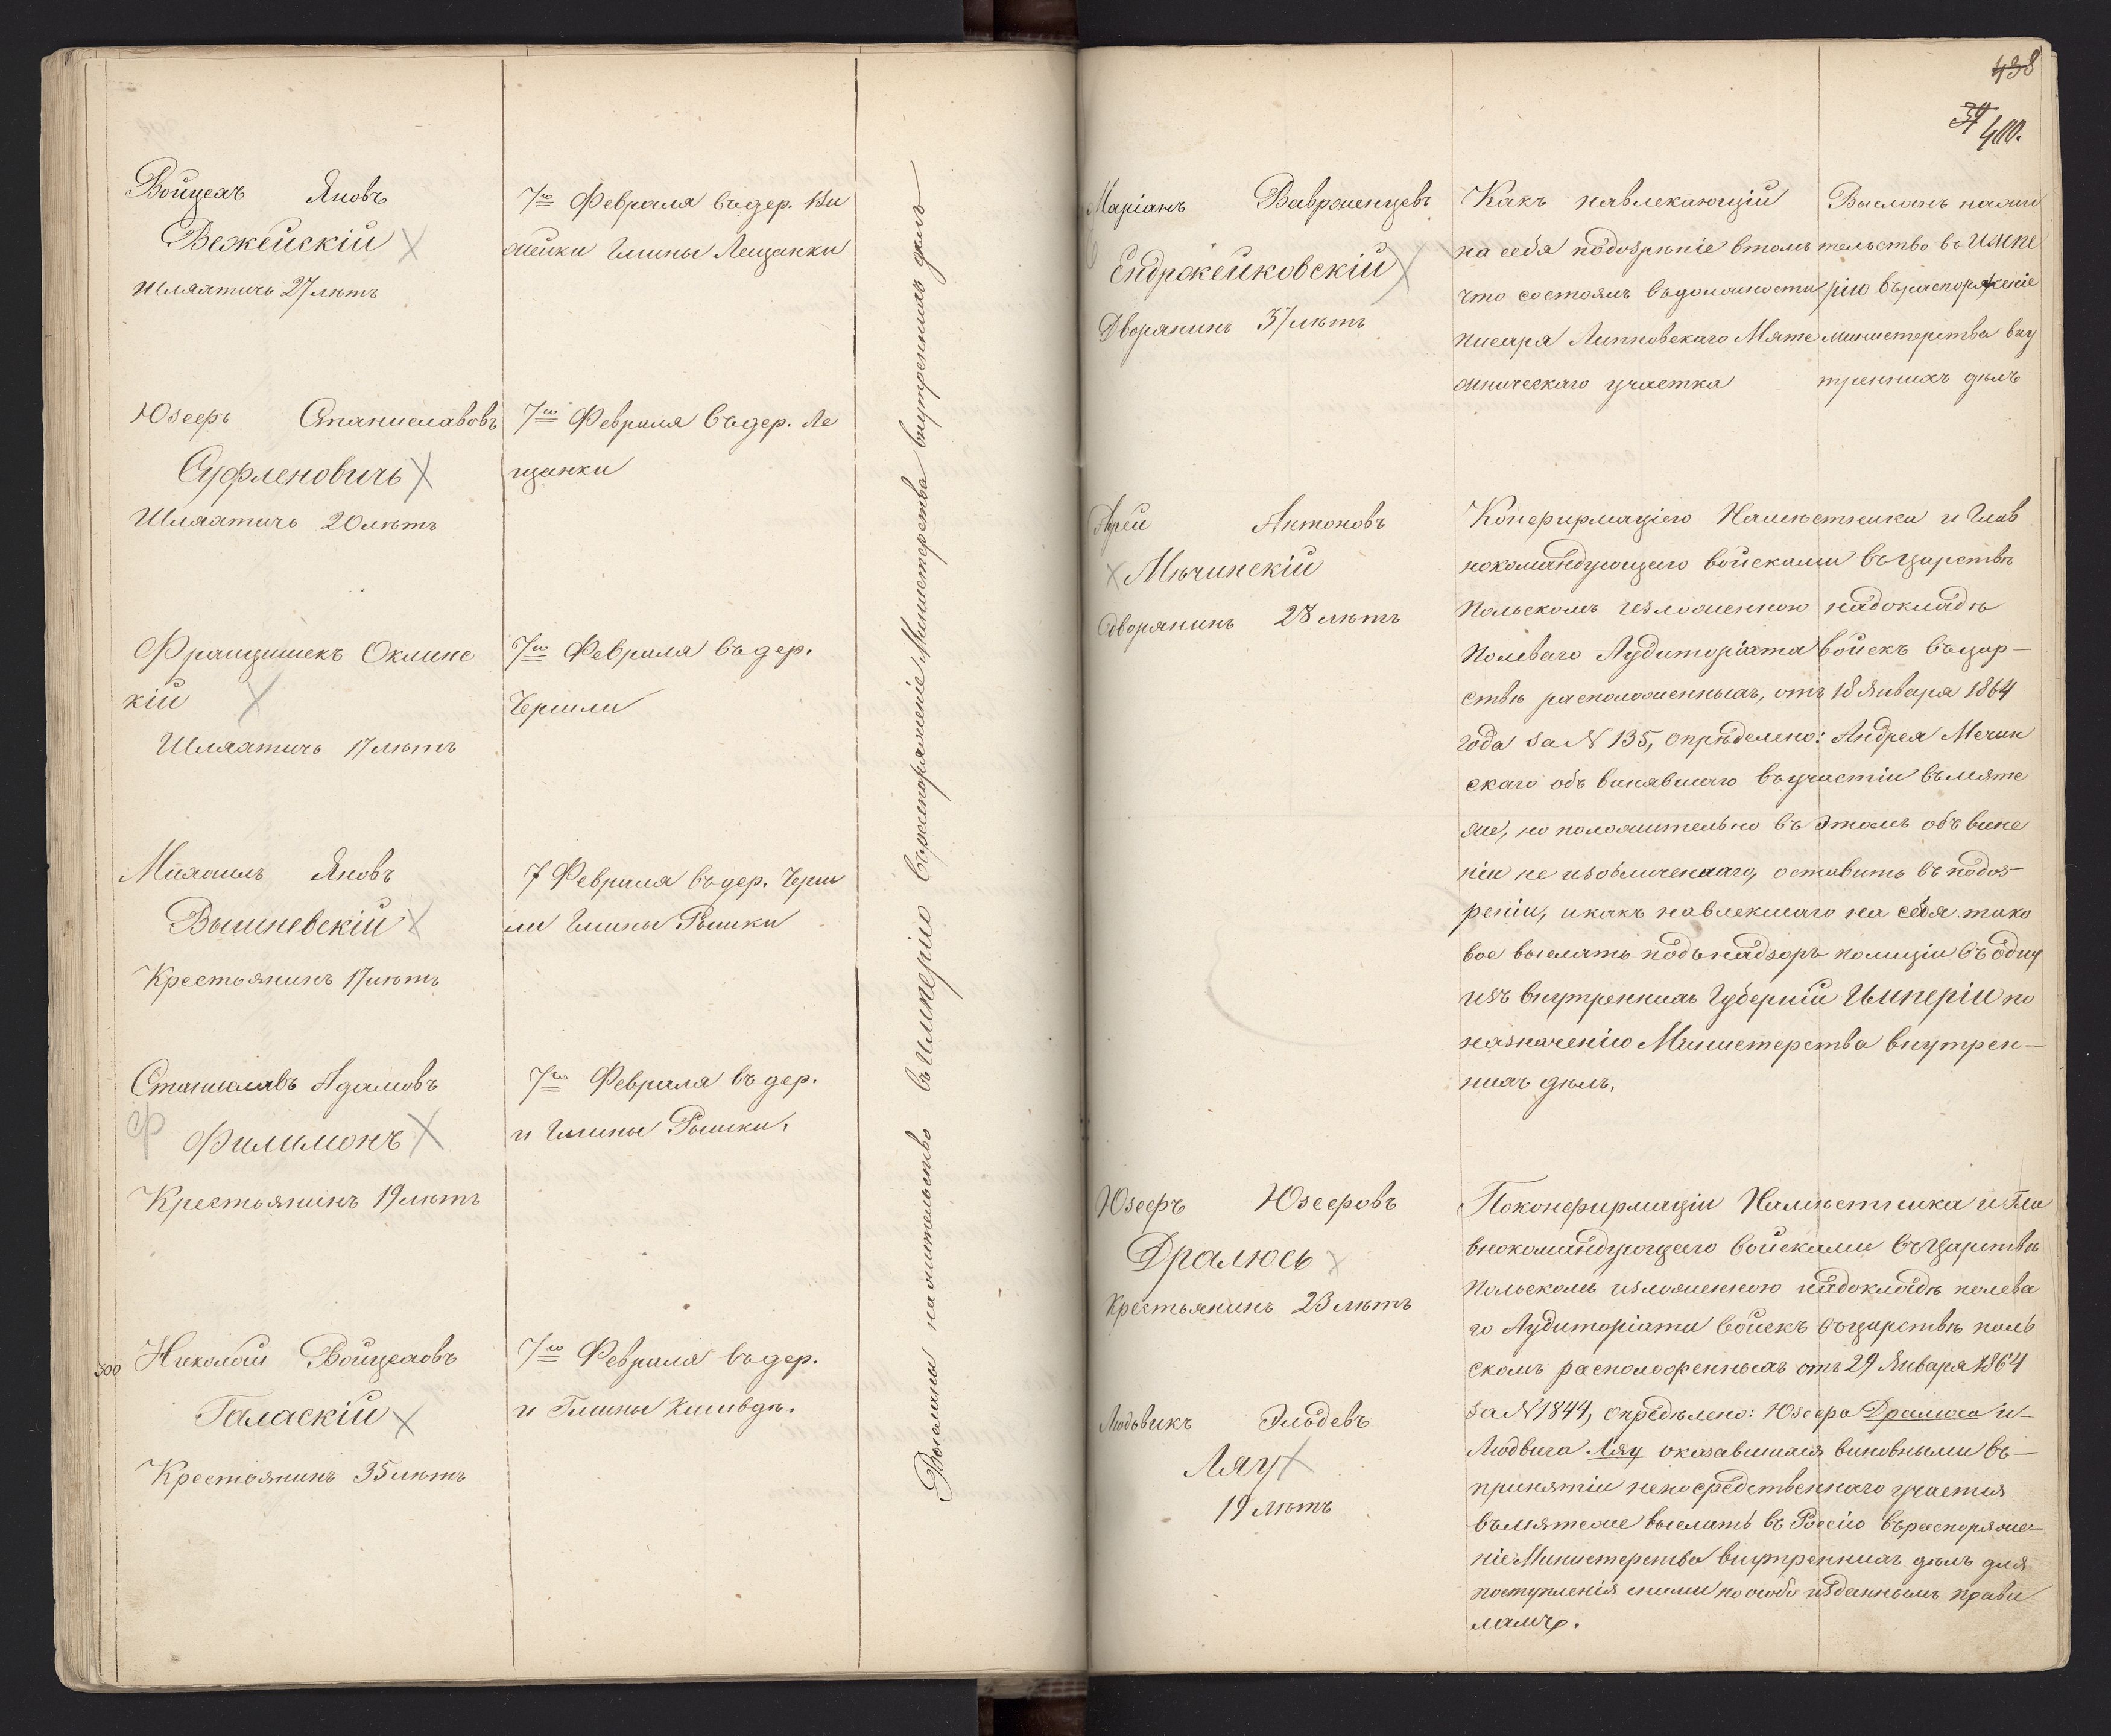 Войцехъ Яновъ
Вежейскій
Шляхтичъ 27 лѣтъ
7го Февраля въ дер. Ви
шейки Гмины Лещанки
Юзефъ Станиславовъ
Суфленовичъ
Шляхтичъ 20 лѣтъ
7го Февраля въ дер. Ле
щанки
Францишекъ Окминс
кій
Шляхтичъ 17 лѣтъ
7го Февраля въ дер.
Михаилъ Яновъ
Вышневскій
Крестьянинъ 17 лѣтъ
7 Февраля въ дер.
ли Гмины Рышки
Станиславъ Адамовъ
Ф
Филимонъ
Крестьянинъ 19 лѣтъ
7го Февраля въ дер.
и Гмины Рышки.
300
Николай Войцеховъ
Галаскій
Крестьянинъ 35 лѣтъ
7го Февраля въ дер.
и Гмины
Высланы на жительство въ Имперію въ распоряженіе Министерства внутреннихъ дѣлъ
438
400.
Маріанъ Вавроменцевъ
Ендржейковскій
Дворянинъ 37 лѣтъ
Какъ навлекающій
на себя подозрѣніе втомъ
что состоялъ въ должности
писаря Липновскаго Мяте
жническаго участка
Высланъ на жи
тельство въ Импе
рію въ распоряженіе
министерства вну
треннихъ дѣлъ
Антоновъ
Мѣчинскій
Дворянинъ 28 лѣтъ
Конфирмаціею Намѣстника и Глав
нокомандующаго войсками въ царствѣ
Польскомъ изложенною на докладѣ
Полеваго Аудиторіата войскъ въ цар-
ствѣ расположенныхъ, отъ 18 Января 1864
года за N 135, опредѣлено: Андрея Мечин
скаго объ винявшаго въ участіи въ мяте
же, но положительно въ этомъ объ вине
ніи не изобличеннаго, оставить въ подоз-
реніи, и какъ навлекшаго на себя тако
вое выслать подъ надзоръ полиціи въ одну
изъ внутреннихъ Губерній Имперіи по
назначенію Министерства внутрен-
нихъ дѣлъ.
Юзефъ Юзефовъ
Дралюсь
Крестьянинъ 23 лѣтъ
Людвикъ
Ляу
19 лѣтъ
По конфирмаціи Намѣстника и Гла
внокомандующаго войсками въ Царствѣ
Польскомъ изложенною на докладѣ полева
го Аудиторіата войскъ въ царствѣ поль
скомъ расположенныхъ отъ 29 Января 1864
за N 1844, опредѣлено: Юзефа Дралюса и-
Людвига Ляу оказавшихся виновными въ-
принятіи непосредственнаго участія
въ мятеже выслать въ Россію въ распоряже-
ніе Министерства внутреннихъ дѣлъ для
поступленія сними по особо изданнымъ прави
ламъ.